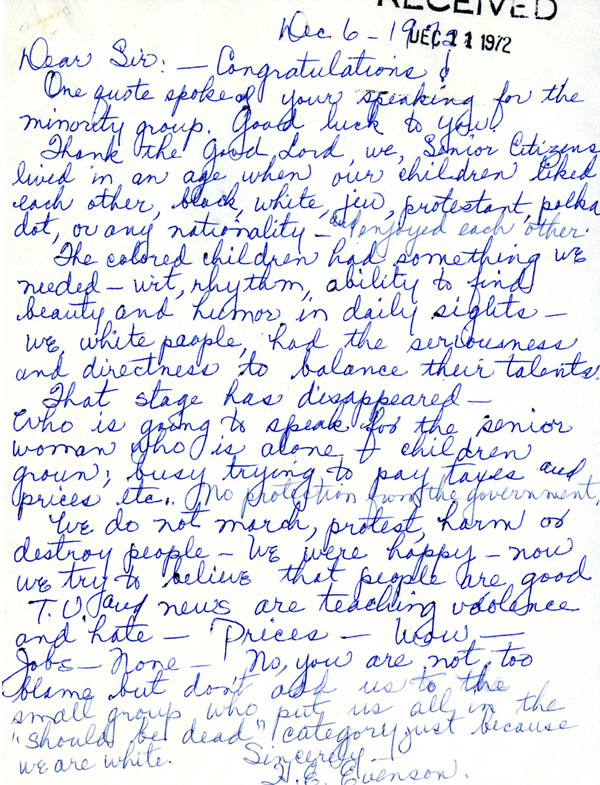 RECEIVED
DEC 11 1972
Dec 6 - 1972
Dear Sir: - Congratulations &
One quote spoke of your speaking for the
minority group. Good luck to you.
Thank the Good Lord, we, Senior Citizens
lived in an age when our children liked
each other, black, white, jew, protestant, polka
dot, or any nationality - and enjoyed each other.
The colored children had something we
needed - wit, rhythm, ability to find
beauty and humor in daily sights -
we, white people, had the seriousness
and directness to balance their talents.
That stage has disappeared -
Who is going to speak for the senior
woman who is alone & children
grown; busy trying to pay taxes and
prices etc. No protection from the government.
We do not march, protest, harm or
destroy people - We were happy - now
we try to believe that people are good
T.V. and news are teaching violence
and hate - Prices - Wow -
Jobs - None - No, you are not too
blame but don't add us to the
small group who put us all in the
"should be dead" category just because
we are white. Sincerely -
H. E. Evenson.